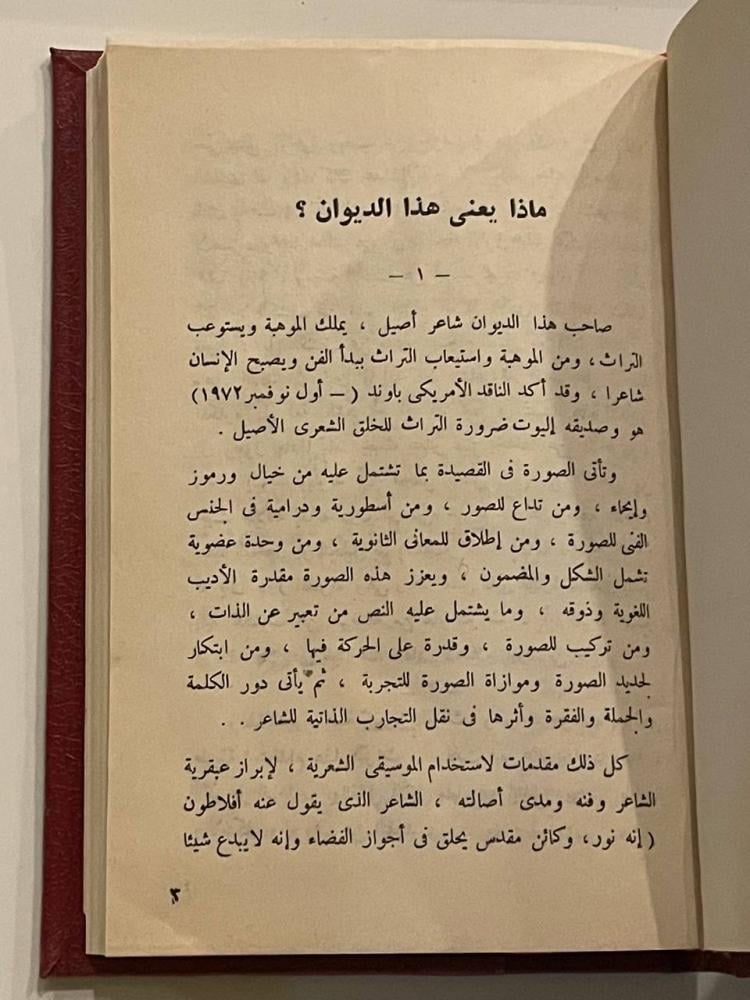 ماذا يعنى هذا الديوان ؟
— ١ —
صاحب هذا الديوان شاعر أصيل ، يملك الموهبة ويستوعب
التراث ، ومن الموهبة واستيعاب التراث يبدأ الفن ويصبح الإنسان
شاعرا ، وقد أكد الناقد الأمريكى باوند ( — أول نوفمبر ١٩٧٢ )
هو وصديقه إليوت ضرورة التراث للخلق الشعرى الأصيل .
وتأتى الصورة فى القصيدة بما تشتمل عليه من خيال ورموز
وإيحاء ، ومن تداع للصور ، ومن أسطورية ودرامية فى الجنس
الفنى للصورة ، ومن إطلاق للمعانى الثانوية ، ومن وحدة عضوية
تشمل الشكل والمضمون ، ويعزز هذه الصورة مقدرة الأديب
اللغوية وذوقه ، وما يشتمل عليه النص من تعبير عن الذات ،
ومن تركيب للصورة ، وقدرة على الحركة فيها ، ومن ابتكار
لجديد الصورة وموازاة الصورة للتجربة ، ثم يأتى دور الكلمة
والجملة والفقرة وأثرها فى نقل التجارب الذاتية للشاعر . .
كل ذلك مقدمات لاستخدام الموسيقى الشعرية ، لإبراز عبقرية
الشاعر وفنه ومدى أصالته ، الشاعر الذى يقول عنه أفلاطون
( إنه نور، وكائن مقدس يحلق فى أجواز الفضاء وإنه لا يبدع شيئا
٣